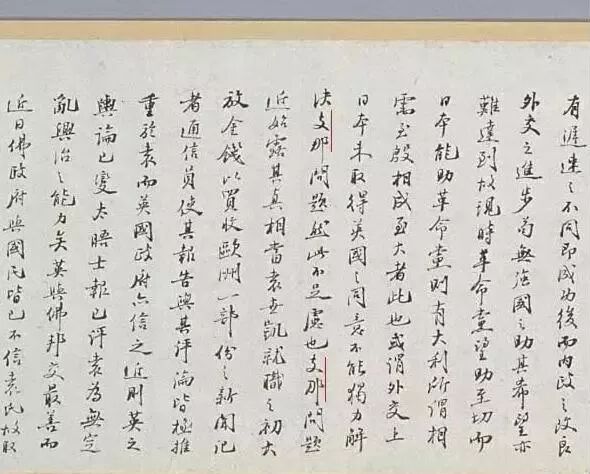 有遲速之不同即成功後而内政之改良
外交之進步苟無強國之助其希望亦
難達到故現時革命黨望助至切而
日本能助革命黨則有大利所謂相
需至殷相成至大者此也或謂外交上
日本未取得英國之同意不能獨力解
决支那問題然此不足慮也支那問題
近始露其真相當袁世凱就職之初大
放金錢以買收歐洲一部份之新聞记
者通信員使其報告與其評論皆極推
重於袁而英國政府亦信之近則英之
輿論已變太晤士報已评袁為無定
亂興治之能力矣英與佛邦交最善而
近日佛政府與國民皆已不信袁氏故取